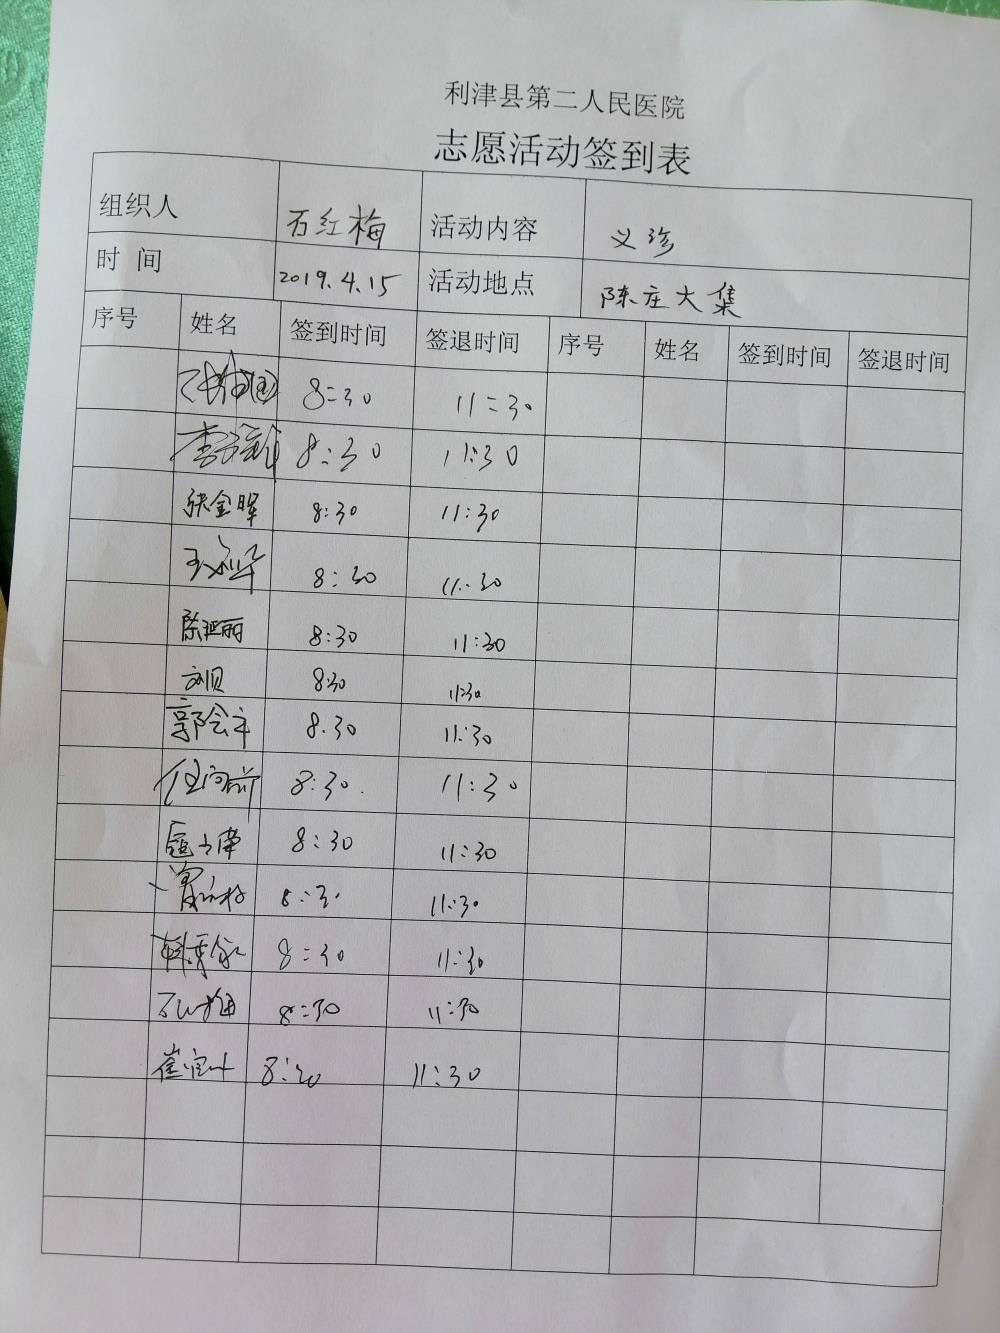 利津县第二人民医院
志愿活动签到表
组织人 石红梅 活动内容 义诊
时 间 2019.4.15 活动地点 陈庄大集
序号 姓名 签到时间 签退时间 序号 姓名 签到时间 签退时间
8:30 11:30
8:30 11:30
张金晖 8:30 11:30
8:30 11:30
陈延丽 8:30 11:30
刘贝 8:30 11:30
郭会军 8.30 11:30
任向前 8:30. 11:30
8:30 11:30
8:30 11:30
8:30 11:30
石红梅 8:30 11:30
8:30 11:30